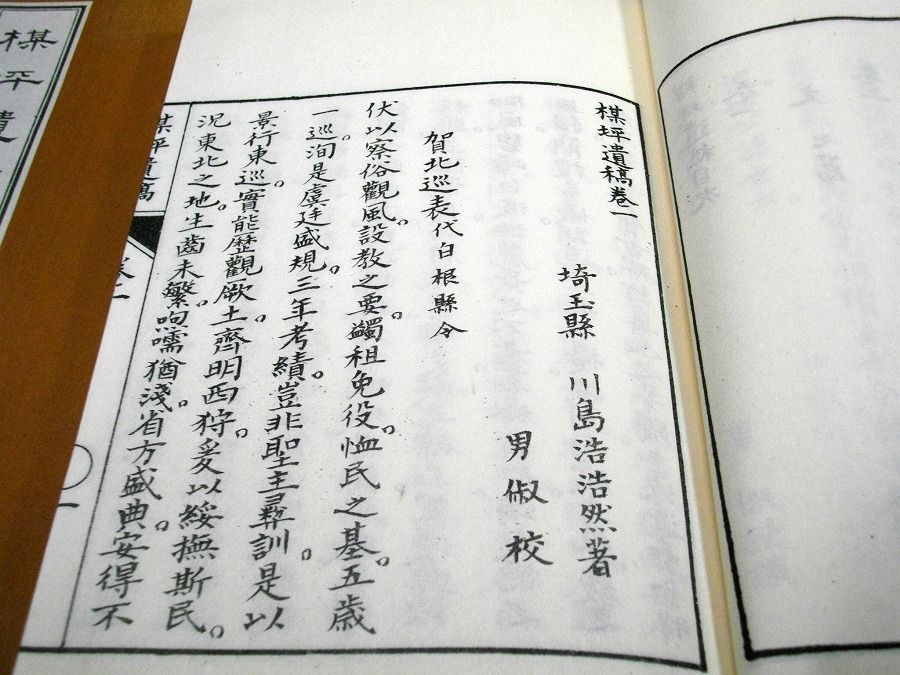 楳坪遺稿卷一
埼玉縣 川島浩浩然著
男俶校
賀北巡表代白根縣令
伏以察俗觀風。設教之要。蠲租免役。恤民之基。五歲
一巡洵是虞廷盛規。三年考績豈非聖主彝訓。是以
景行東巡。實能歷觀厥土。齊明西狩。爰以綏撫斯民。
況東北之地。生齒未繁。呴嚅猶淺。省方盛典。安得不
楳坪遺稿
卷一
一
楳坪遺